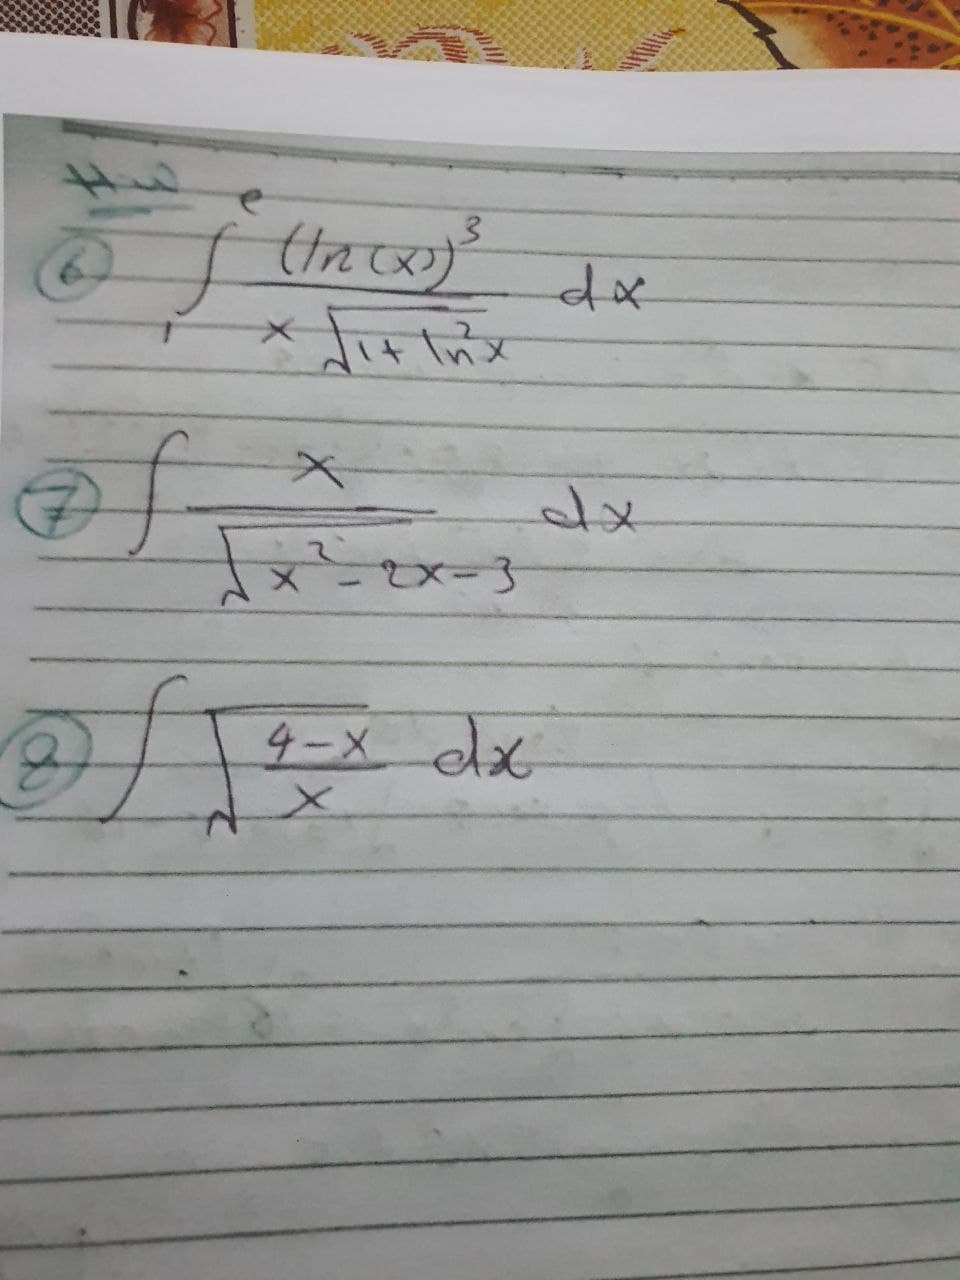 H.W
⑥ ∫₁ᵉ (ln(x))³ / (x √(1+ln²x)) dx
⑦ ∫ x / √(x²-2x-3) dx
⑧ ∫ √((4-x)/x) dx